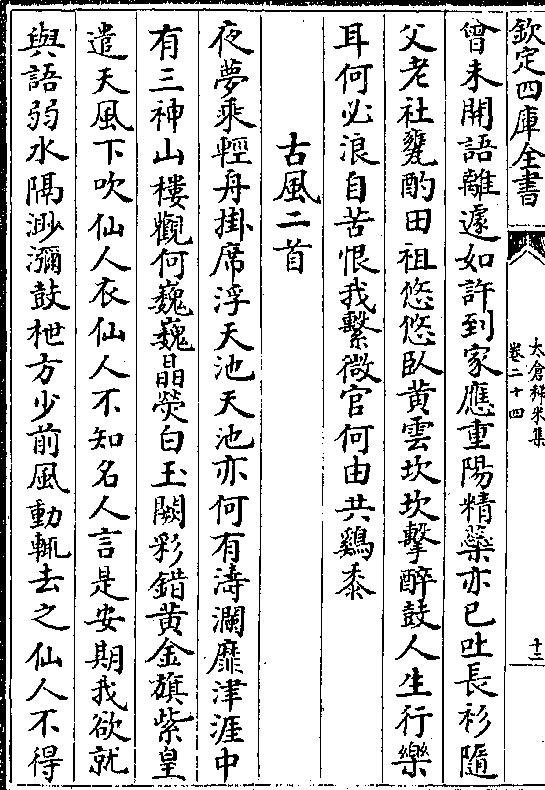 欽定四庫全書
太倉稊米集
卷二十四
十三
曾未開語離遽如許到家應重陽精蘂亦已吐長衫隨
父老社甕酌田祖悠悠臥黄雲坎坎擊醉鼓人生行樂
耳何必浪自苦恨我繫微官何由共鷄黍
古風二首
夜夢乘輕舟掛席浮天池天池亦何有濤瀾靡津涯中
有三神山樓觀何巍巍晶熒白玉闕彩錯黄金旗紫皇
遣天風下吹仙人衣仙人不知名人言是安期我欲就
與語弱水隔渺瀰鼓枻方少前風動輒去之仙人不得